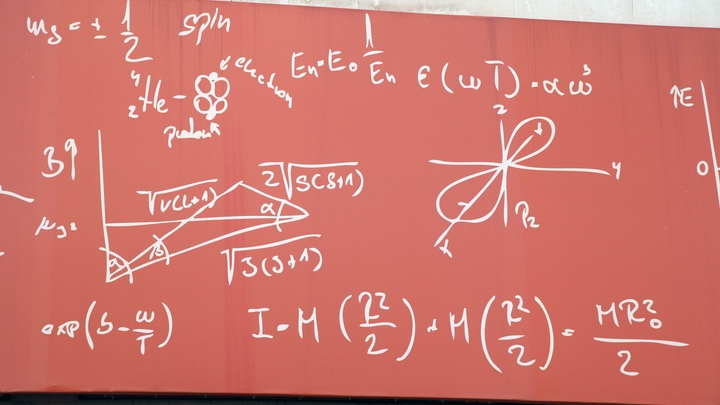 m_s = ± 1/2 spin
⁴₂He
electron
proton
E_n = E_0 1/E_n
ϵ(ω T) = α ω³
↑E
0
z
y
x
P_2
B↑
√L(L+1)
2√S(S+1)
α
α
β
√J(J+1)
exp(b - ω/T)
I = M (R²/2) + M (R²/2) = MR²₀/2